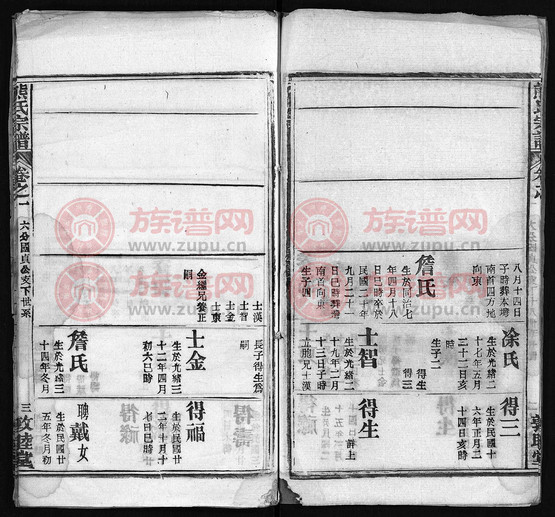 熊氏宗譜
卷之一
八月十四日
子時葬本塆
南首四方地
向東
詹氏
生於同治七
年四月十八
日巳時卒於
民國二十年
九月二
南首向東
生子四
士漢
士智
士金
士東
金耀兄養正
嗣
涂氏
生於光緒二
十七年五月
二十二日亥
時
生子二
得生
得三
士智
生於光緒二
十九年二月
十三日子時
立胞兄士漢
長子得生爲
嗣
士金
生於光緒三
十二年四月
初六日時
詹氏
生於光緒三
十四年冬月
得三
生於民國十
六年正月二
十四日亥時
得生
詳上
得福
生於民國廿
二年十月十
七日巳時
聘戴女
生於民國廿
五年冬月初
熊氏宗譜
卷之一
六分國貞公支下世系
三
敦睦堂
族谱网
www.zupu.cn
族谱网
www.zupu.cn